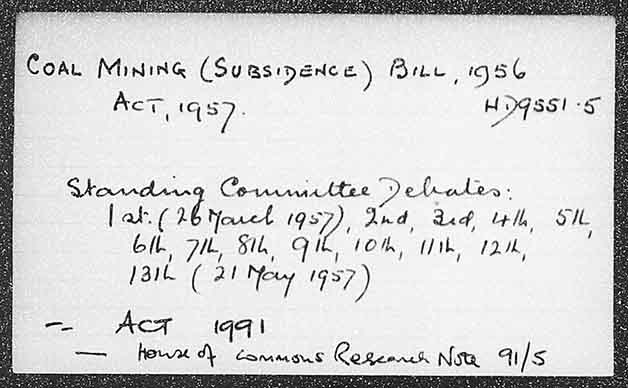 COAL MINING (SUBSIDENCE) BILL, 1956
ACT, 1957. HD9551.5
Standing Committee Debates:
1st. (26 March 1957), 2nd, 3rd, 4th, 5th,
6th, 7th, 8th, 9th, 10th, 11th, 12th,
13th (21 May 1957)
-- ACT 1991
— House of Commons Research Note 91/5